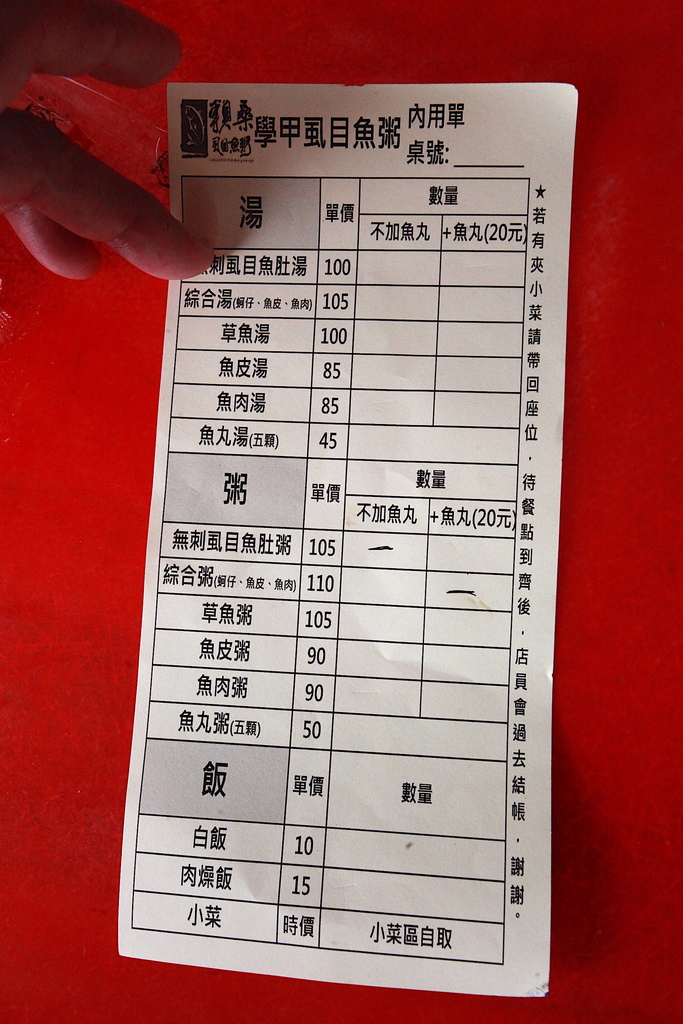 賴桑
虱目魚粥
學甲虱目魚粥
內用單
桌號:
湯 單價 數量
不加魚丸 +魚丸(20元)
刺虱目魚肚湯 100
綜合湯(蚵仔、魚皮、魚肉) 105
草魚湯 100
魚皮湯 85
魚肉湯 85
魚丸湯(五顆) 45
粥 單價 數量
不加魚丸 +魚丸(20元)
無刺虱目魚肚粥 105 一
綜合粥(蚵仔、魚皮、魚肉) 110 一
草魚粥 105
魚皮粥 90
魚肉粥 90
魚丸粥(五顆) 50
飯 單價 數量
白飯 10
肉燥飯 15
小菜 時價 小菜區自取
★若有夾小菜請帶回座位，待餐點到齊後，店員會過去結帳，謝謝。